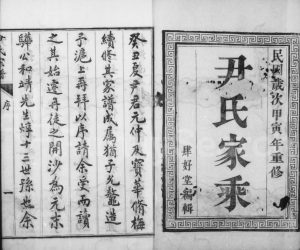 民國歲次甲寅年重修
尹氏家乘
肆好堂編輯
癸丑夏尹君元仲及寶華脩梅
續修其家譜成屬猶子克龍造
予滬上再拜以序請余受而讀
之其始遷再徒之開沙為元末
驊公和靖先生焞十三世孫也余
尹氏家乘
序
一